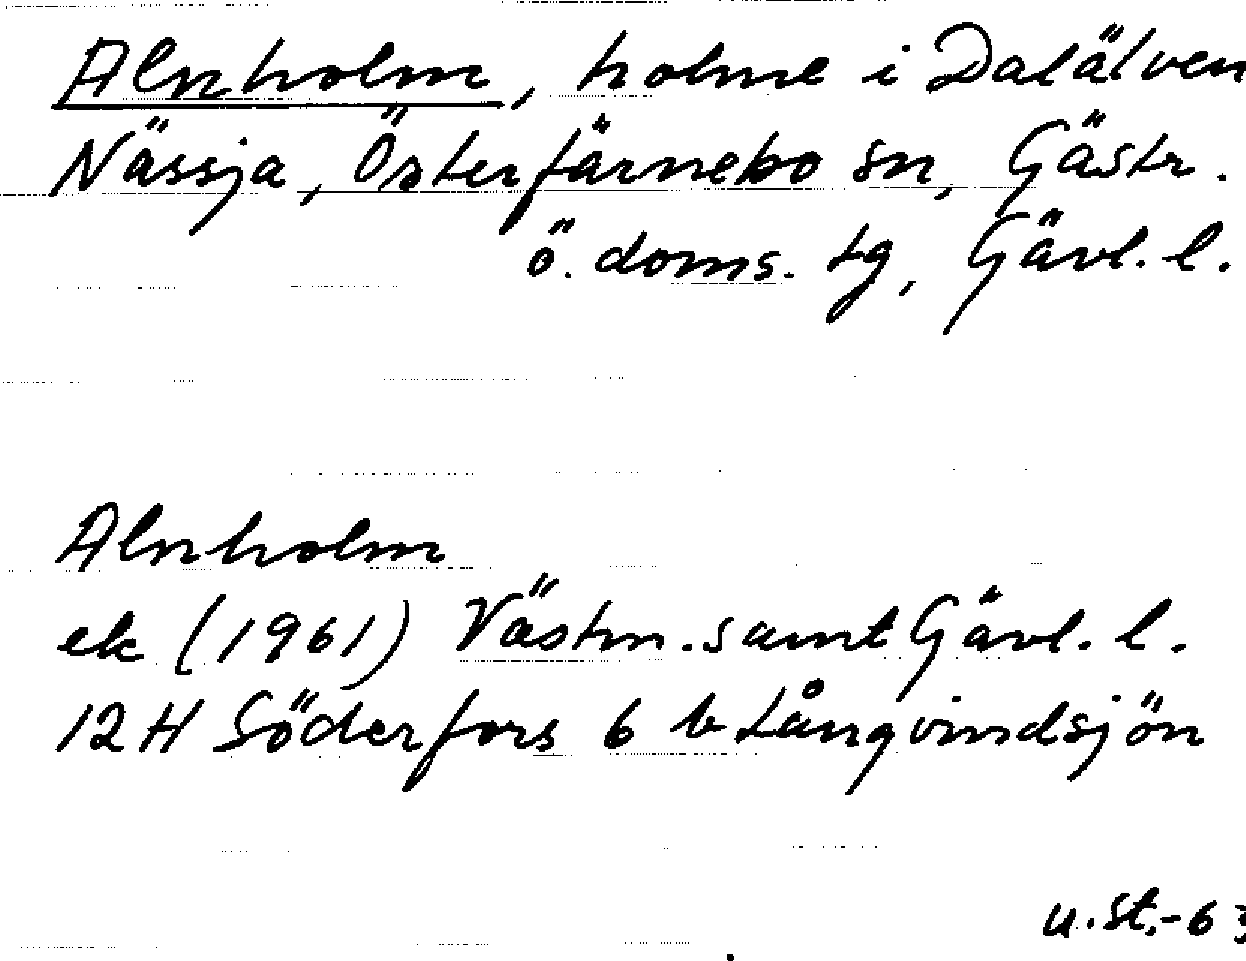 Alnholm, holme i Dalälven
Nässja, Österfärnebo sn, Gästr.
ö. doms. tg, Gävl. l.
Alnholm
ek (1961) Västm. samt Gävl. l.
12H Söderfors 6 b Långvindsjön
u. St.-63